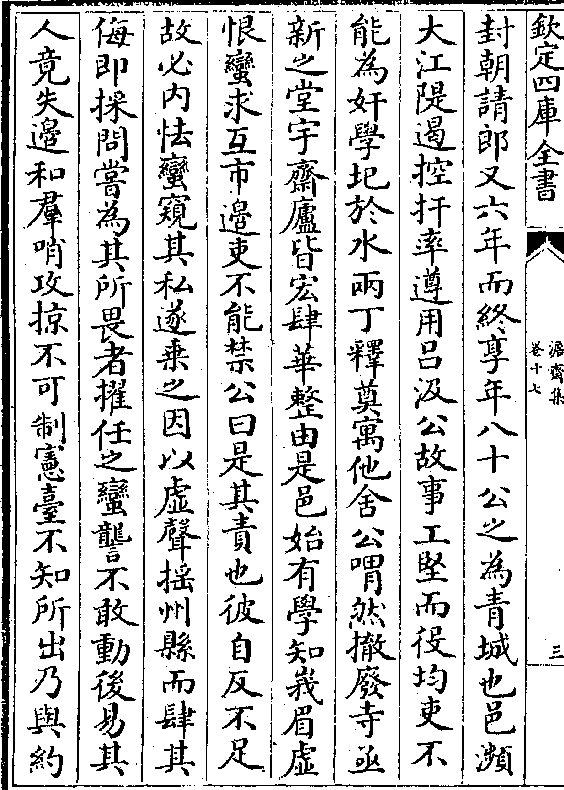 欽定四庫全書
封朝請郎又六年而終享年八十公之為青城也邑瀕
大江隄遏控扞率遵用呂汲公故事工堅而役均吏不
能為奸學圯於水兩丁釋奠寓他舍公喟然撤廢寺亟
新之堂宇齋廬皆宏肆華整由是邑始有學知峩眉虛
恨蠻求互市邉吏不能禁公曰是其責也彼自反不足
故必内怯蠻窺其私遂乗之因以虛聲揺州縣而肆其
侮即採問嘗為其所畏者擢任之蠻讋不敢動後易其
人竟失邉和羣哨攻掠不可制憲臺不知所出乃與約
澹齋集
卷十七
三